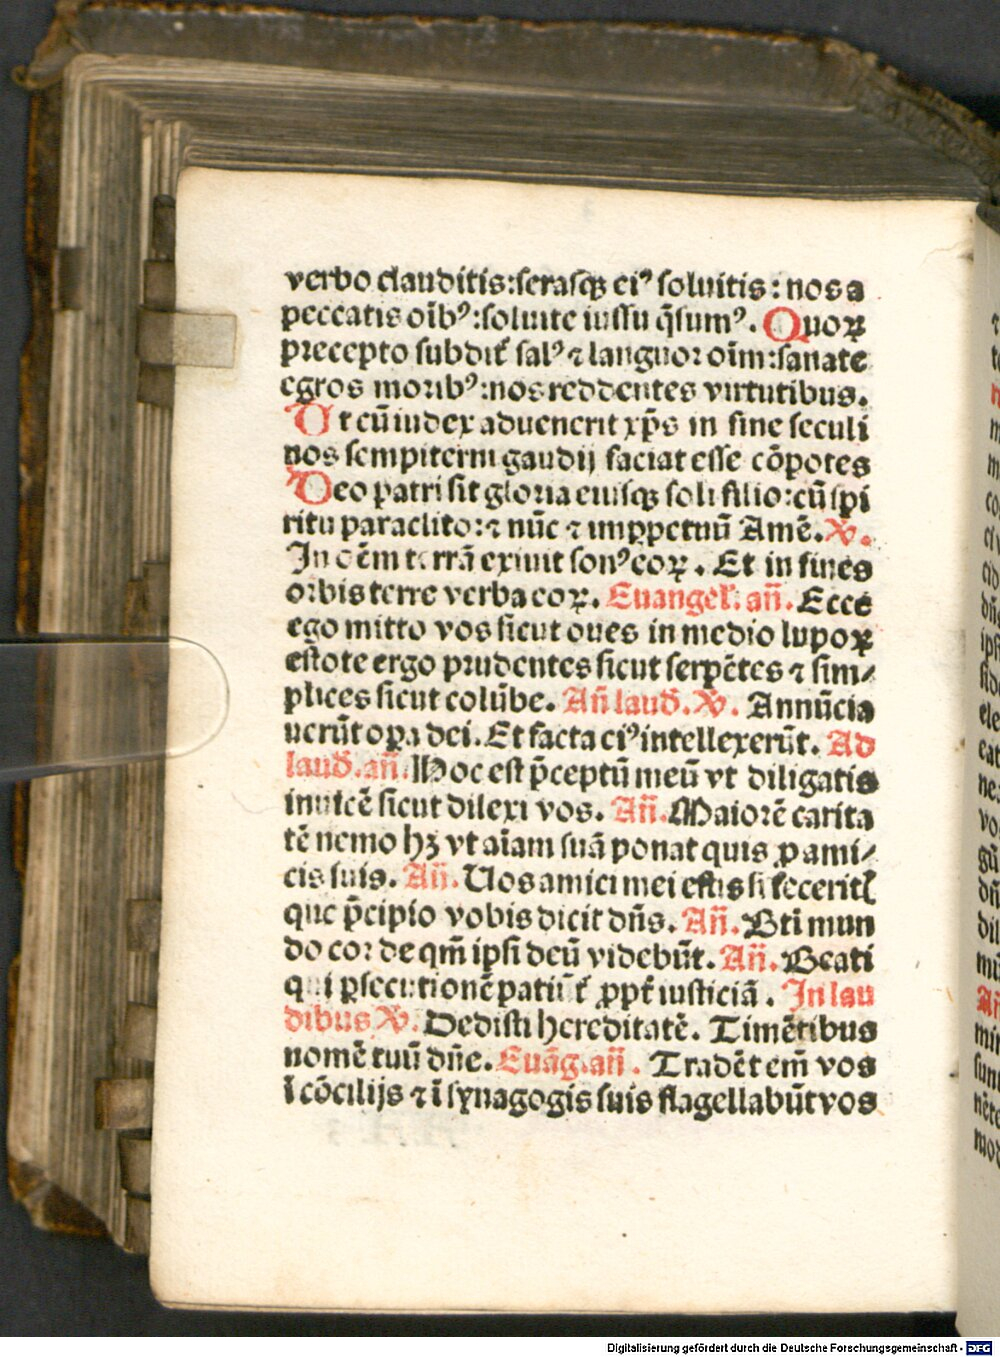 verbo clauditis:serasqꝫ eiꝰ soluitis:nos a
peccatis oībꝰ:soluite iussu q̄sumꝰ. Quoꝝ
precepto subdit̄ salꝰ ⁊ languor oīm:sanate
egros moribꝰ:nos reddentes virtutibus.
Ut cū iudex aduenerit xp̄s in fine seculi
nos sempiterni gaudij faciat esse cōpotes
Deo patri sit gloria eiusqꝫ soli filio:cū spi
ritu paraclito:⁊ nūc ⁊ imꝑpetuū Amē. V.
In oēm terrā exiuit sonꝰ eoꝝ. Et in fines
orbis terre verba eoꝝ. Euangel. añ. Ecce
ego mitto vos sicut oues in medio lupoꝝ
estote ergo prudentes sicut serpētes ⁊ sim/
plices sicut colūbe. Añ laud. V. Annūcia
uerūt opa dei. Et facta eiꝰ intellexerūt. Ad
laud. añ. Hoc est p̄ceptū meū vt diligatis
inuicē sicut dilexi vos. Añ. Maiorē carita
tē nemo hꝫ vt aīam suā ponat quis ꝓ ami/
cis suis. Añ. Uos amici mei estis si feceritꝭ
que p̄cipio vobis dicit dn̄s. Añ. Bt̄i mun
do corde qm̄ ipsi deū videbūt. Añ. Beati
qui ꝑsecutionē patiūt̄ ꝓpt̄ iusticiā. In lau
dibus V. Dedisti hereditatē. Timētibus
nomē tuū dn̄e. Euāg. añ. Tradēt em̄ vos
ī cōcilijs ⁊ ī synagogis suis flagellabūt vos
Digitalisierung gefördert durch die Deutsche Forschungsgemeinschaft - DFG